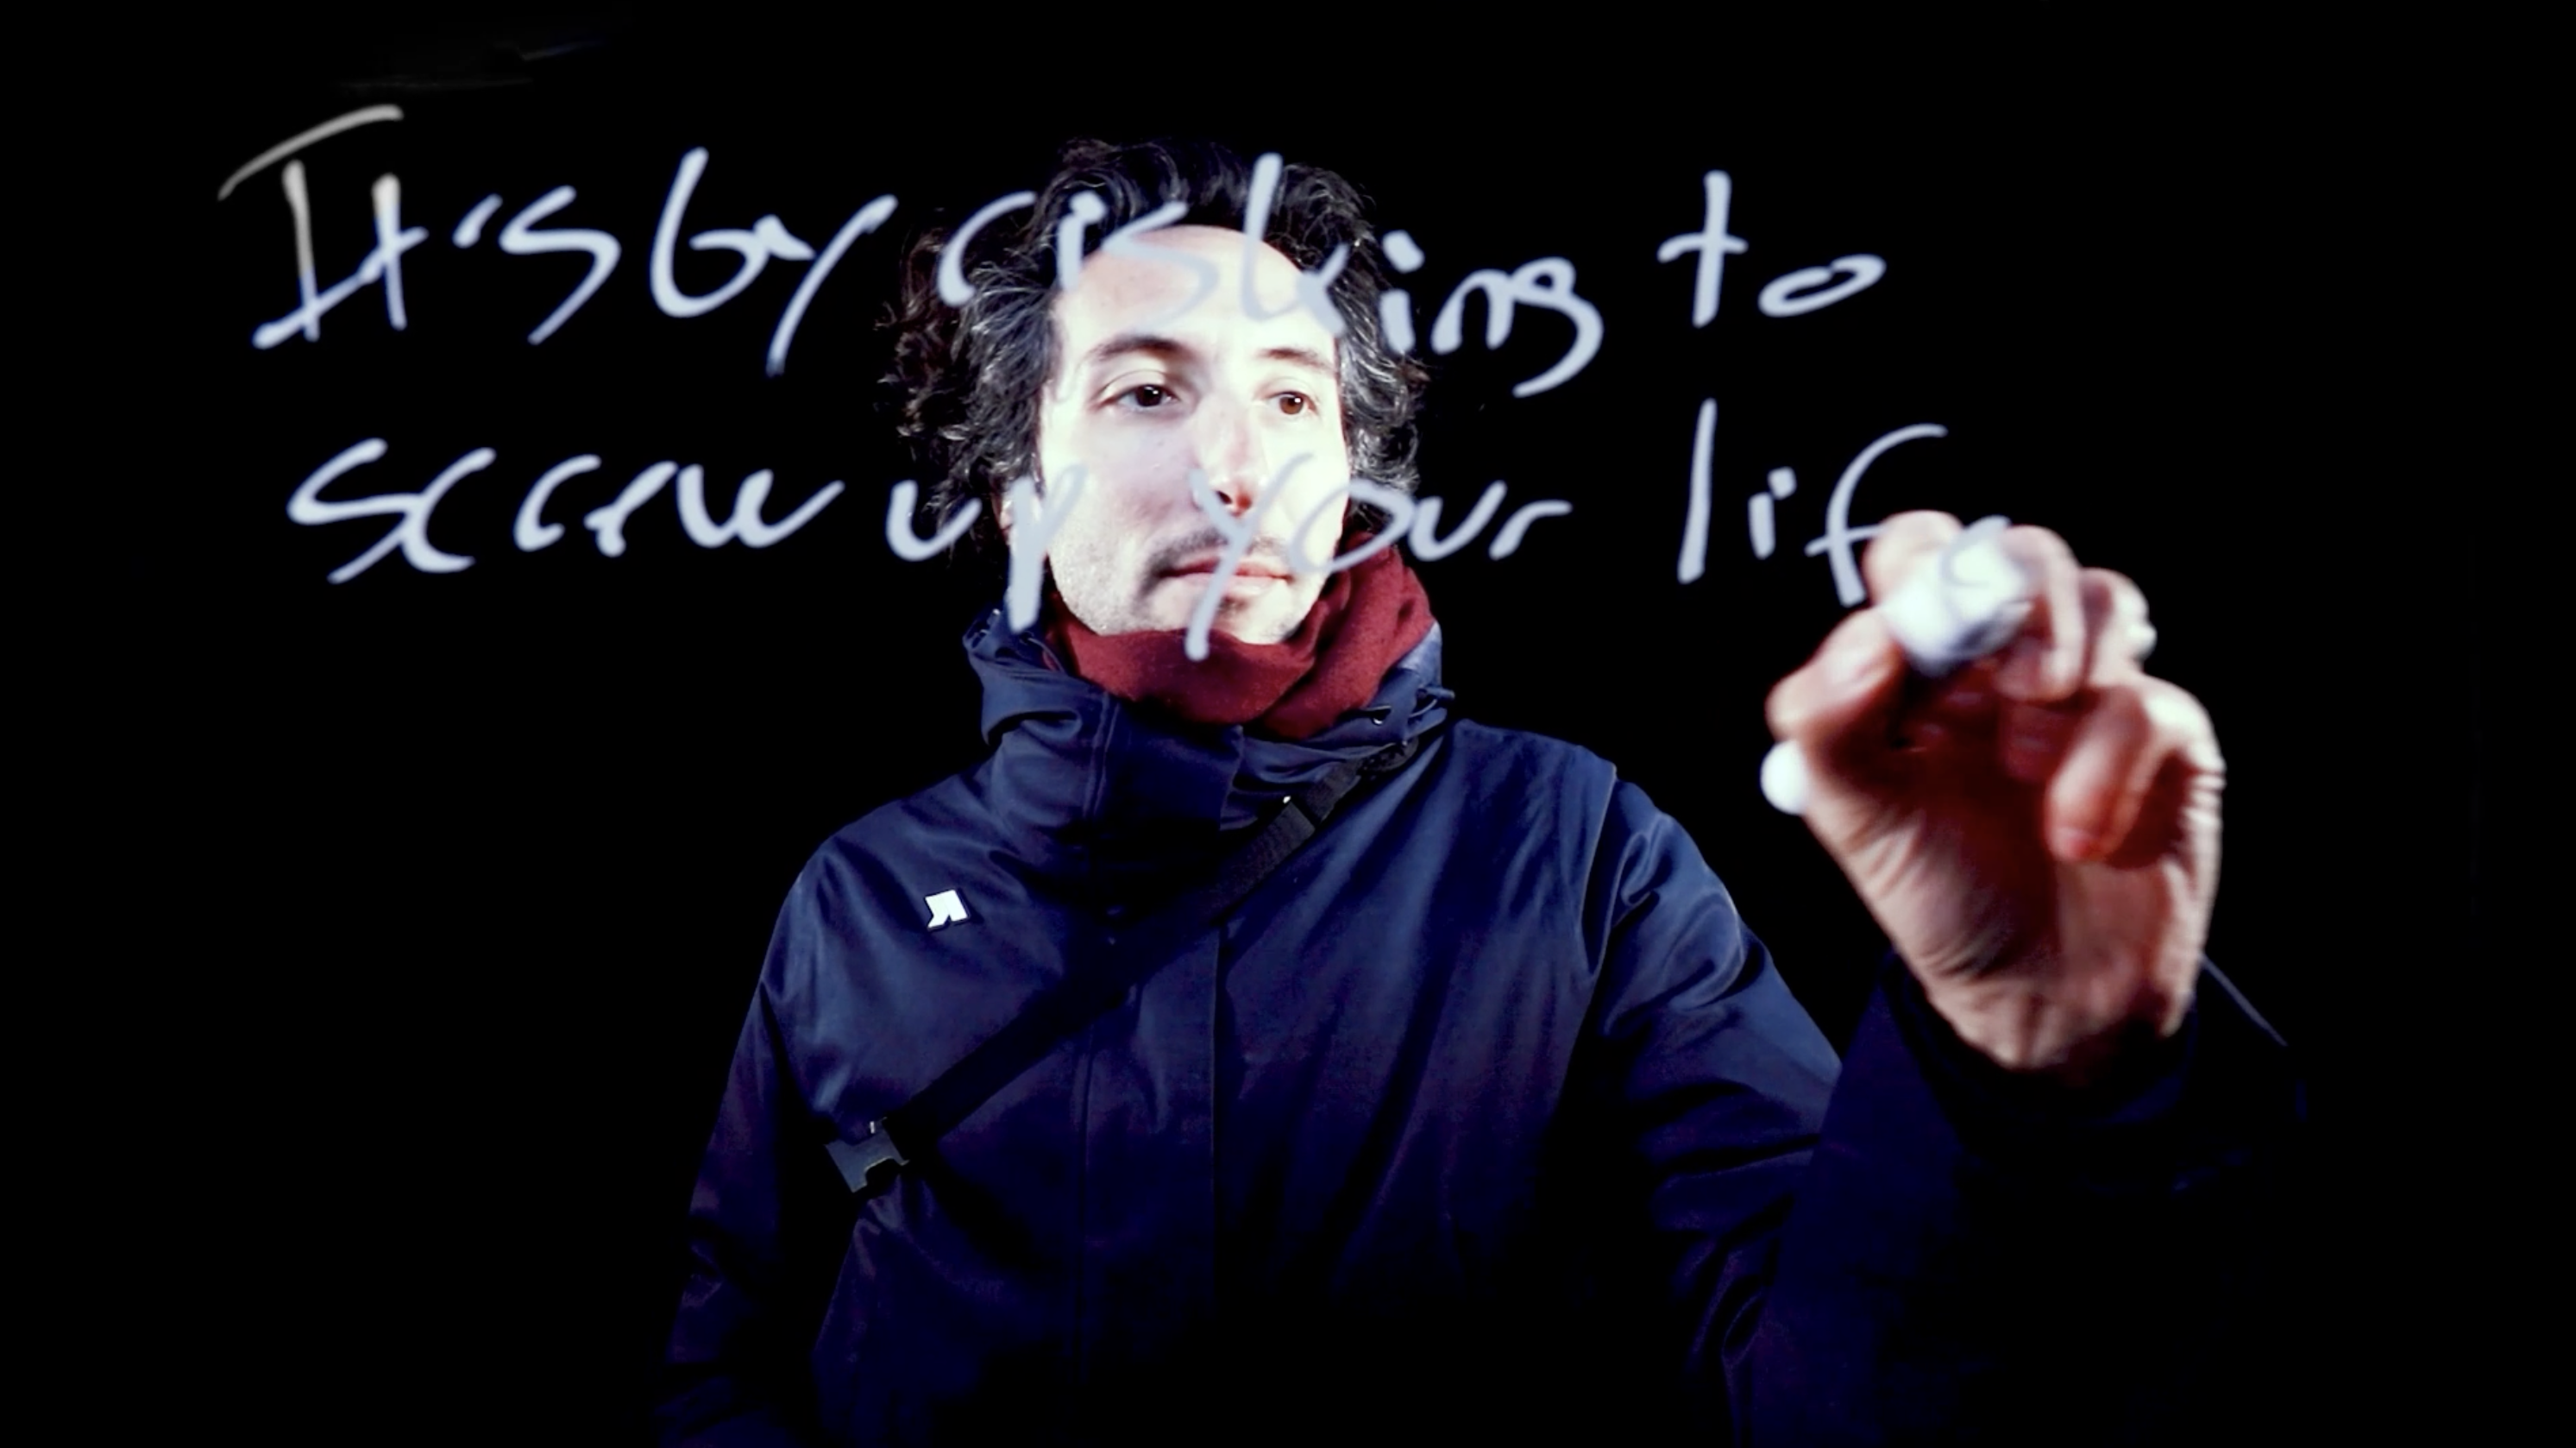 It's by risking to
screw up your life